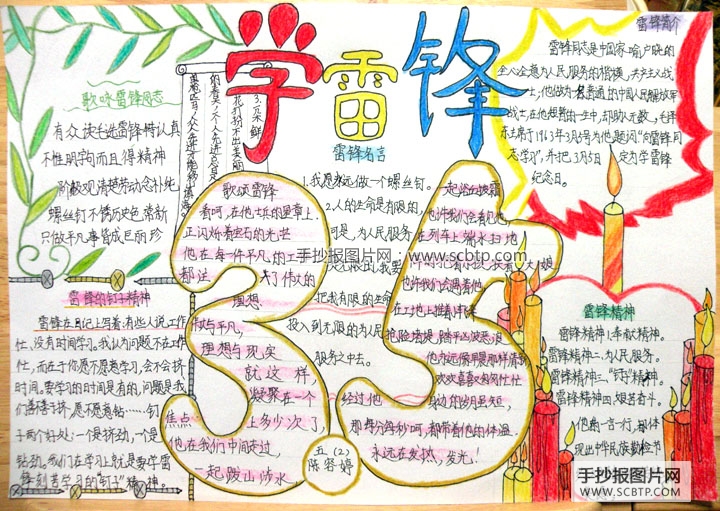 学雷锋
歌咏雷锋同志
不惟明字句而且得精神
阶敝观清楚劳动念朴纯
螺丝钉不锈历史色常新
只做平凡事皆成巨丽珍
3.一朵鲜
花打扮不出美丽
雷锋简介
全心全意为人民服务的楷模,共产主义战
士;他作为一名普通的中国人民解放军
战士,在他短暂的一生中,却助人无数。毛泽
东主席于1963年3月5日为他题词“向雷锋同
志学习”,并把3月5日定为学雷锋
纪念日。
雷锋名言
1.我愿永远做一个螺丝钉。
2.人的生命是有限的,
可是,为人民服务
把我有限的生命
投入到无限的为人民
服务之中去。
歌颂雷锋
看呵,在他士兵的皇章上.
正闪烁着宝石的光芒
他在每一件平凡的工
都注
了伟大的
理想
伟大与平凡,
理想与现实
就这样,
凝聚在一个
焦点:
上多少次了,
他在我们中间走过,
一起跋山涉水,
一起沐浴
也许我们会看见他,
在列车上端水扫地
也许我们会看见他
在工地上推着小车
抢险堤堤,踏平恶浪
欢欢喜喜匆匆忙忙
经过他
身边的岁月虽短,
那每分每秒呵,都带着他的体温.
永远在发热,发光!
五(2)
陈容婷
雷锋的钉子精神
雷锋在日记上写着:有些人说工作
忙、没有时间学习。我认为问题不在工作
忙,而在于你愿不愿意学习,会不会挤
时间。要学习的时间是有的,问题是我
们善不善于挤,愿不愿意钻……钉
子两个好处:一个是挤劲,一个是
钻劲。我们在学习上就是要学雷
锋刻苦学习的“钉子”精神。
雷锋精神
雷锋精神一:奉献精神。
雷锋精神二:为人民服务。
雷锋精神三:“钉子”精神。
雷锋精神四:艰苦奋斗。
他的一言一行,都体
现出中华民族勤俭节
手抄报图片网:www.scbtp.com
手抄报图片网
WWW.SCBTP.COM